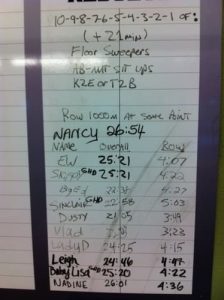 10-9-8-7-6-5-4-3-2-1 OF:
(+21 MIN)
Floor Sweepers
AB-MAT SIT UPS
K2E or T2B
ROW 1000M AT SOME POINT
NANCY 26:54
NAME OVERALL ROW
EW 25:21 4:07
GHD 25:21 4:22
SINCLAIR GHD 22:58 5:03
DUSTY 21:05 3:49
Vlad 3:23
LADY D 24:25 4:15
Leigh 24:46 4:47
Baby Lisa GHD 25:20 4:22
NADINE 26:01 4:36